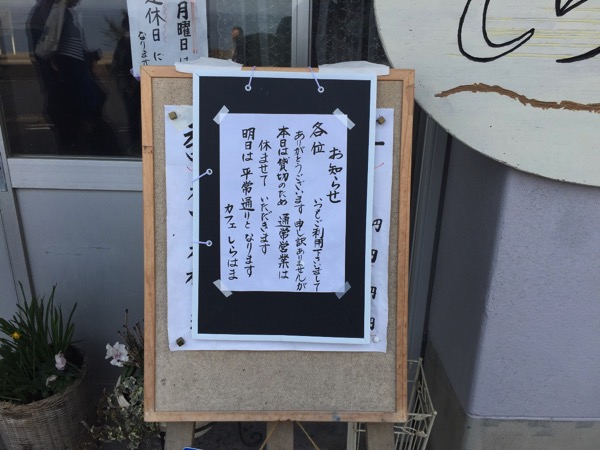 お知らせ
各位 いつもご利用下さいまして
ありがとうございます 申し訳ありませんが
本日は貸切のため 通常営業は
休ませて いただきます
明日は 平常通りと なります
カフェ しらはま
月曜日は
定休日に
なります
円
円
円
円